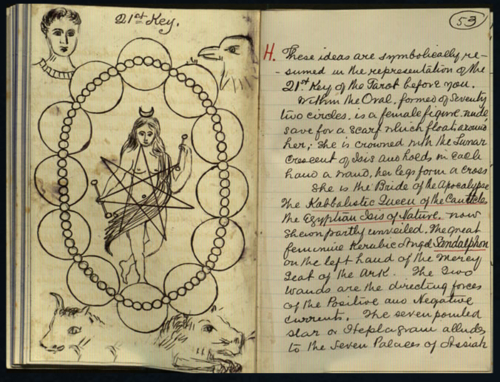 21st Key.
53
H. These ideas are symbolically re-
-sumed in the representation of the
21st Key of the Tarot before you.
Within the Oval, formed of Seventy
two circles, is a female figure, nude
save for a scarf which floats round
her. She is crowned with the Lunar
Crescent of Isis and holds in each
hand a wand, her legs form a cross
She is the Bride of the Apocalypse
The Kabbalistic Queen of the Canticles
the Egyptian Isis of Nature. now
shewn partly unveiled. The great
feminine Kerubic Angel Sandalphon
on the left hand of the Mercy
Seat of the Ark. The two
wands are the directing forces
of the Positive and Negative
currents. The seven pointed
Star or Heptagram alludes
to the Seven Palaces of Assiah